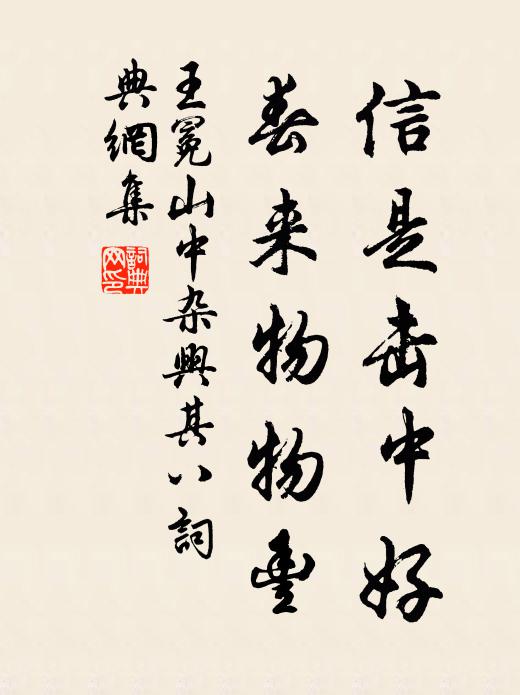 信是中好
春来物物豊
王冕山中杂興其八詞
典網集
詞典
网印